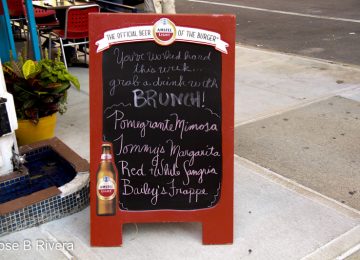 THE OFFICIAL BEER OF THE BURGER
AMSTEL
LIGHT
You've worked hard
this week...
grab a drink with
BRUNCH!
Pomegrante Mimosa
Tommy's Margarita
Red + White Sangria
Bailey's Frappe
AMSTEL
LIGHT
ose B Rivera